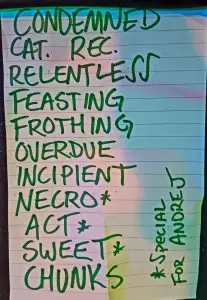 CONDEMNED
CAT. REC.
RELENTLESS
FEASTING
FROTHING
OVERDUE
INCIPIENT
NECRO*
ACT*
SWEET*
CHUNKS
*SPECIAL
FOR ANDREJ